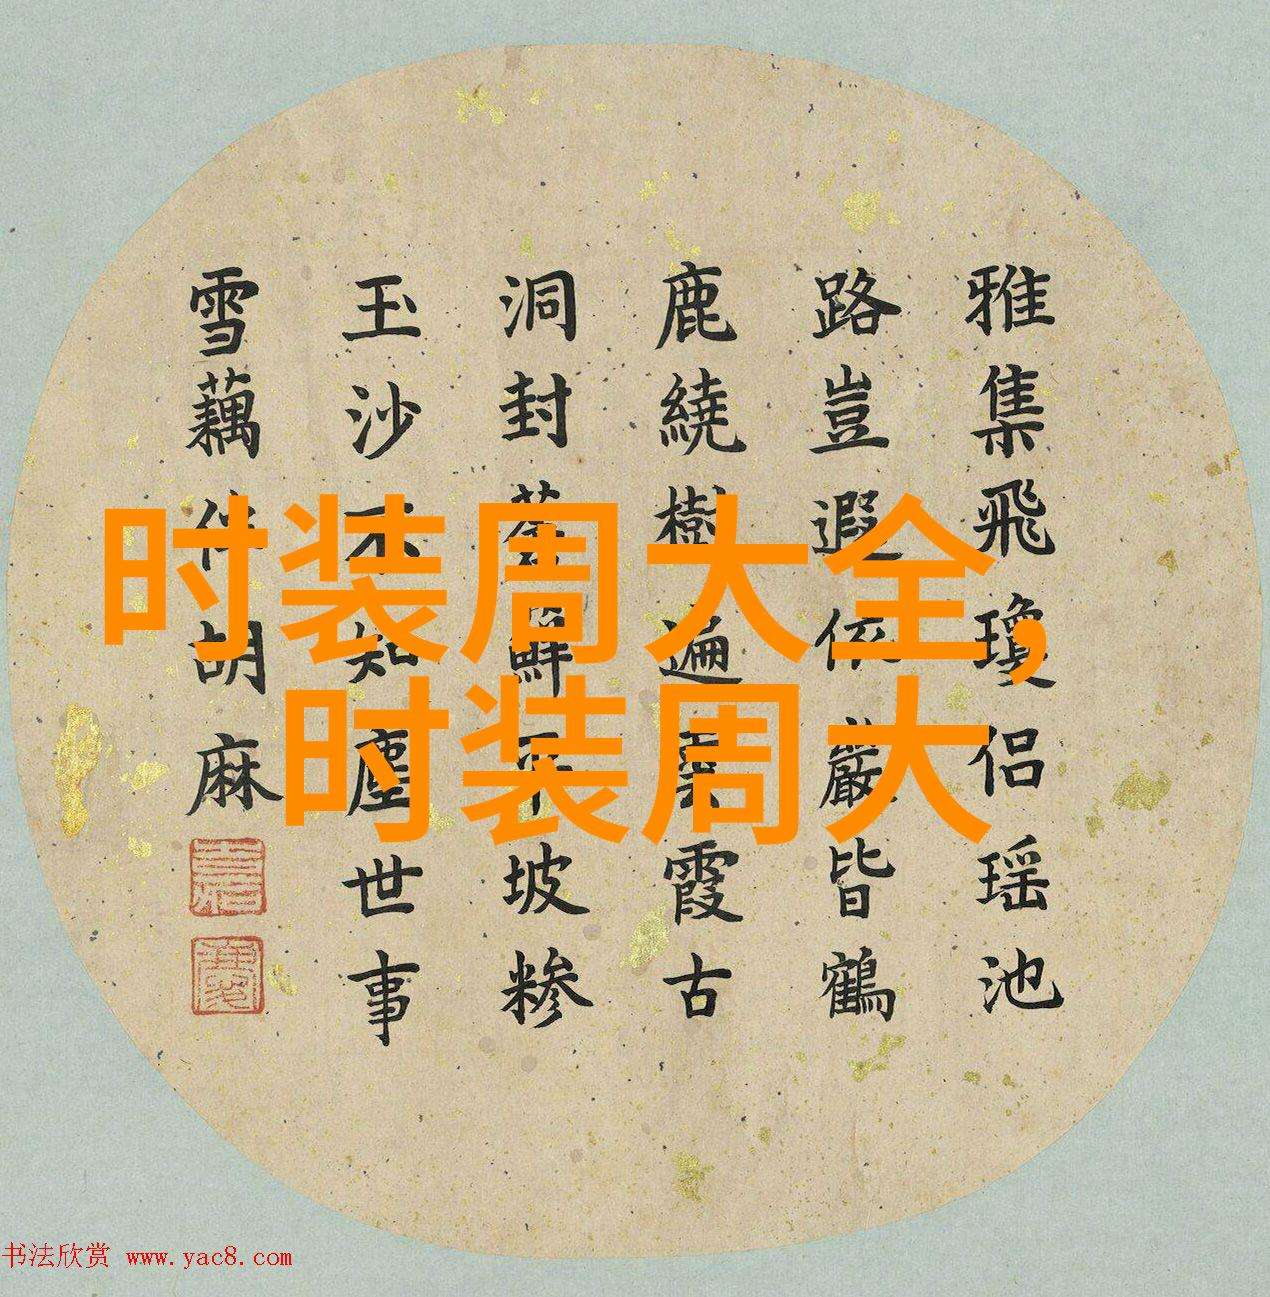 时装周大全,
时装周大
雅集飛瓊侶瑶池
路豈遐依巖皆鶴
鹿繞樹遍雲霞古
洞封苔蘚平坡糝
玉沙不知塵世事
雪藕伴胡麻
书法欣赏 www.yac8.com